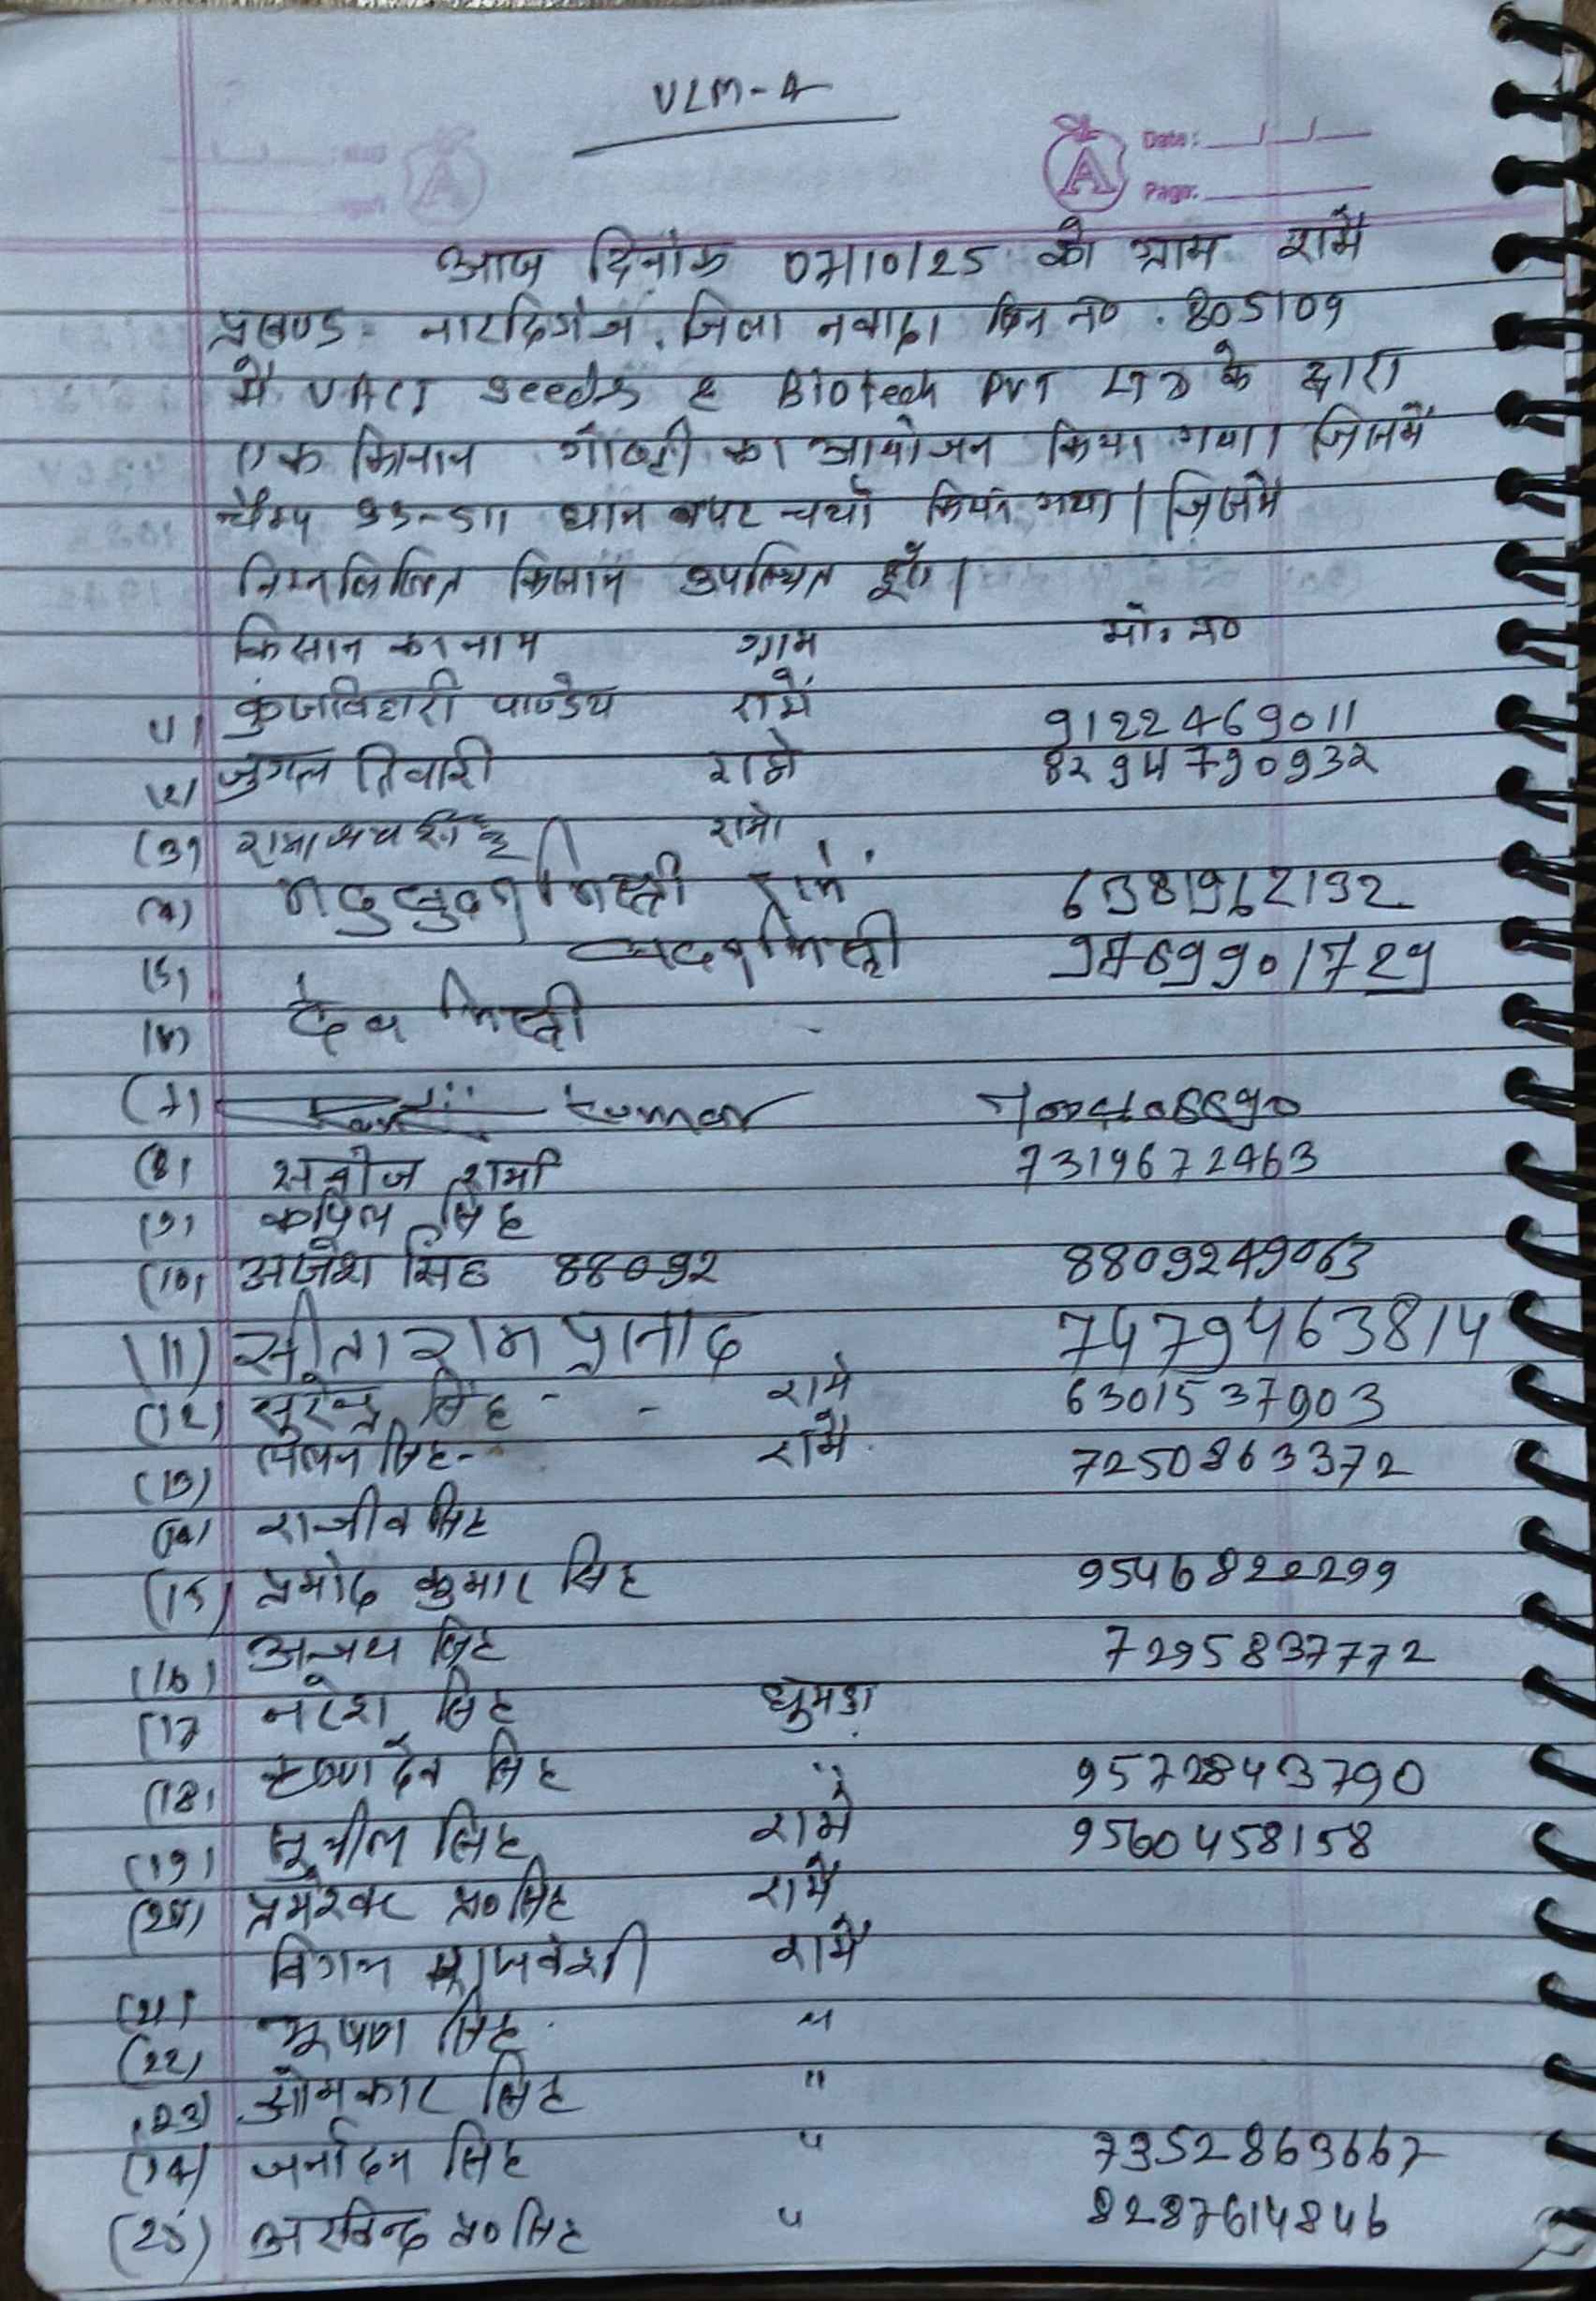 VLM-A
Date: __/__/__
Page:
आज दिनांक 07/10/25 को ग्राम रामे
प्रखण्ड- नारदिगंज, जिला नवादा पिन न० . 805109
मे Seeds & Biotech PVT LTD के द्वारा
एक किसान गोष्टी का आयोजन किया गया। जिसमें
चैम्प 95-511 धान पर चर्चा किया गया। जिसमे
निम्नलिखित किसान उपस्थित हुए।
किसान का नाम ग्राम मो. न०
(1) कुंजविहारी पाण्डेय रामें 9122469011
(2) जुगल तिवारी रामे 8294790932
(3) रामाश्रय सिंह रामे
(4) मिस्त्री रामे 6381962192
(5) मिस्त्री 9769901729
(6) देव मिस्त्री
(7) kumar
(8) सनोज शर्मा 7319672463
(9) कपिल सिंह
(10) अजेश सिंह 88092 8809249063
(11) सीता राम प्रसाद 7479463814
(12) सुरेन्द्र सिंह - - रामे 6301537903
(13) ललन सिंह- रामै 7250863372
(14) राजीव सिंह
(15) प्रमोद कुमार सिंह 9546822299
(16) अजय सिंह 7295837772
(17 नरेश सिंह
(18) कृष्णदेव सिंह " 9572843790
(19) सुशील सिंह रामे 9560458158
(20) प्र० सिंह रामै
(21) राजवंशी रामै
(22) भूषण सिंह "
(23) ओमकार सिंह "
(24) जर्नादन सिंह " 7352863667
(25) अरविन्द प्र० सिंह " 8287614846